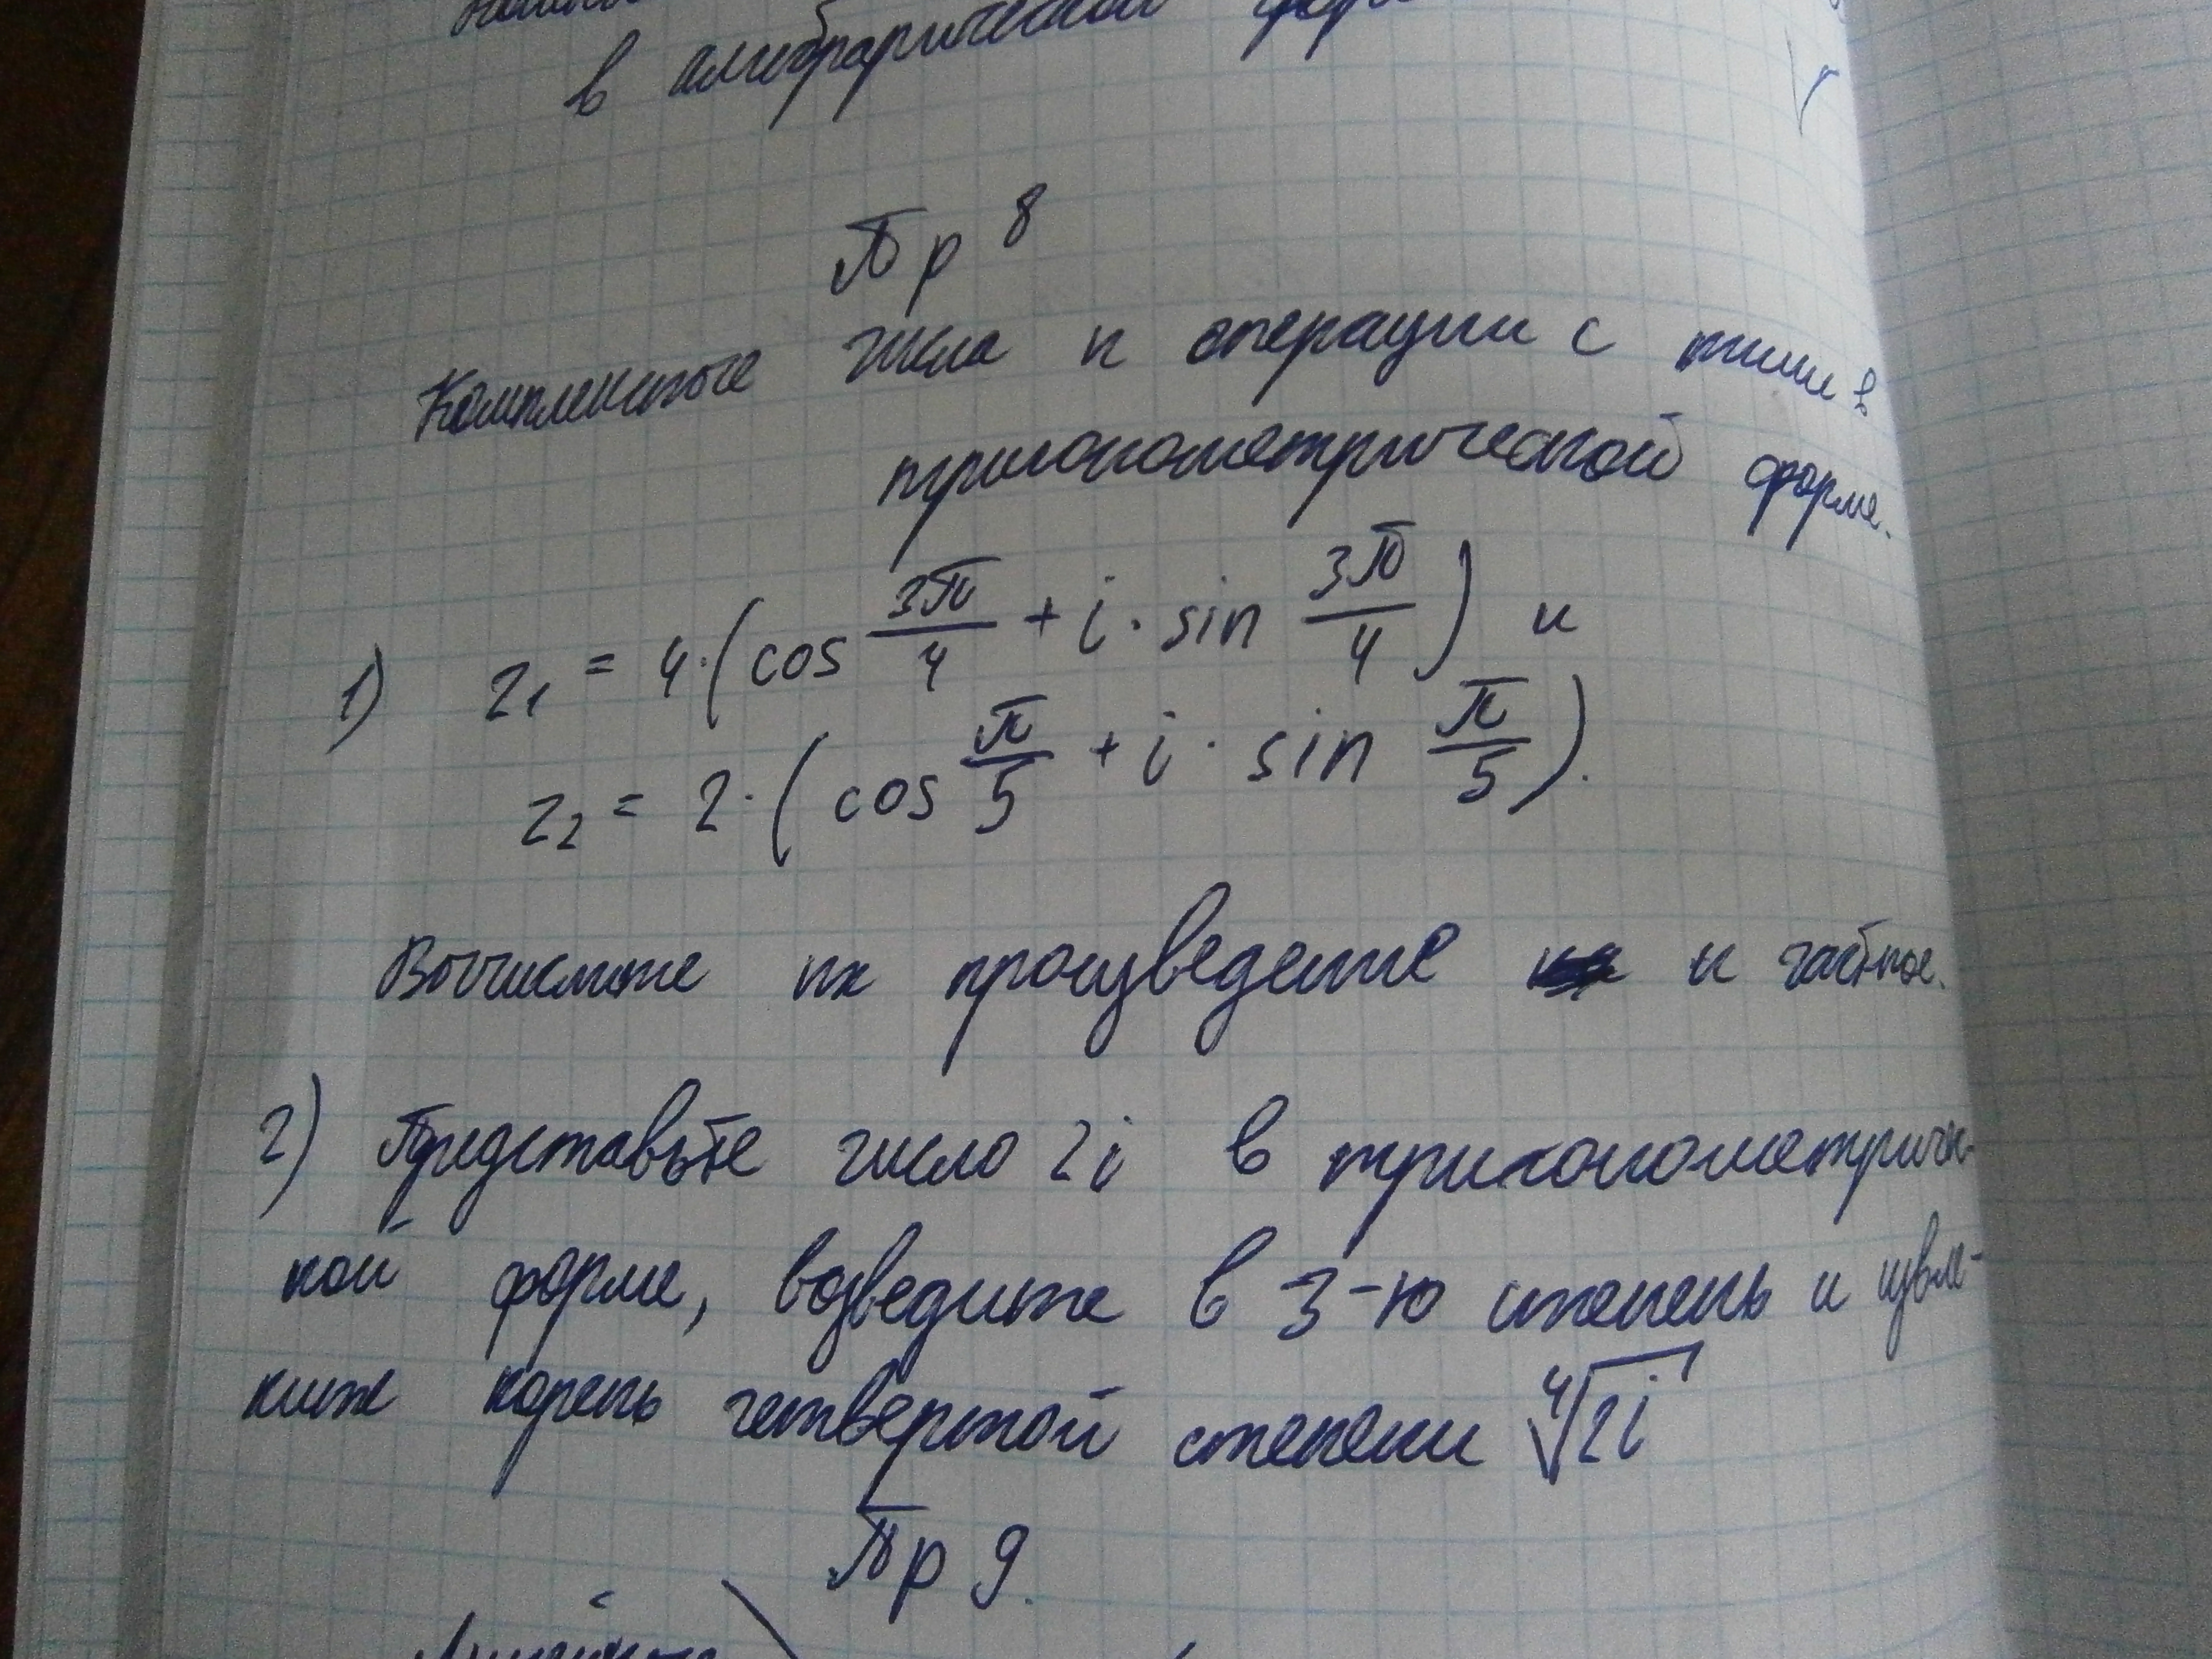 в алгебраической
Пр 8
Комплексные числа и операции с ними в
тригонометрической форме.
1) z₁ = 4·(cos 3π/4 + i·sin 3π/4) и
z₂ = 2·(cos π/5 + i·sin π/5).
Вычислите их произведение и частное.
2) Представьте число 2i в тригонометричес-
кой форме, возведите в 3-ю степень и извле-
ките корень четвертой степени ⁴√2i
Пр 9.